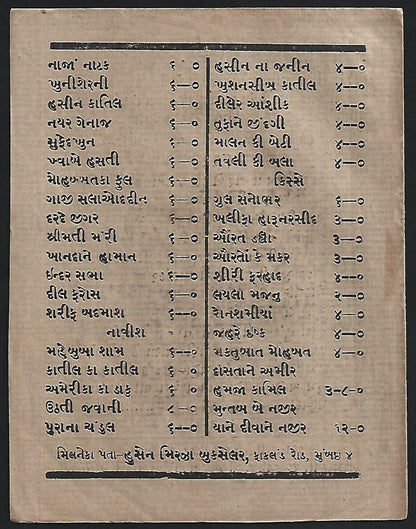 નાજાં નાટક ૬ ૦
ખુનીશેરની ૬—૦
હુસીન કાતિલ ૬—૦
નયર ગેનાજ ૬—૦
સુફેદખુન ૬—૦
ખ્વાબે હસતી ૬—૦
મોહબ્બતકા ફુલ ૬—૦
ગાજી સલાઓદદીન ૬—૦
દરદે જીગર ૬—૦
શ્રીમતી મંજરી ૬—૦
ખાનદાને હામાન ૬—૦
ઇન્દર સભા ૬—૦
દીલ ફરોસ ૬—૦
શરીફ બદમાશ ૬—૦
નાવીશ
મહેબુબા શામ ૬—૦
કાતીલ કા કાતીલ ૬—૦
અમેરીકા કા ડાકુ ૬ ૦
ઉડતી જવાની ૮—૦
પુરાના ચંડુલ ૬—૦
હુસીન ના જનીન ૪—૦
ખુશનસીબ કાતીલ ૪—૦
દીલેર આંશીક ૪—૦
તુફાને જીંદગી ૪—૦
માલન કી બેટી ૪—૦
તવેલી કી બલા ૪—૦
કિસ્સે
ગુલ સનોબર ૬—૦
ખલીફા હારૂનરસીદ ૩—૦
ઓરત હઠ્ઠા ૩—૦
ઓરતોં કે મકર ૩—૦
શીરી ફરહાદ ૪—૦
લયલો મજનુ ૨—૦
સેનશમીયાં ૪—૦
જહરે ઇશ્ક ૪—૦
મકતુબાત મોહબત ૪—૦
દાસતાને અમીર
હમજા કામિલ ૩-૮-૦
મુન્તખ બે નજીર
યાને દીવાને નજીર ૧૨-૦
મિલનેકા પતા—હુસેન મિરઝા બુકસેલર, ફાકલંડ રોડ, મુંબઇ ૪